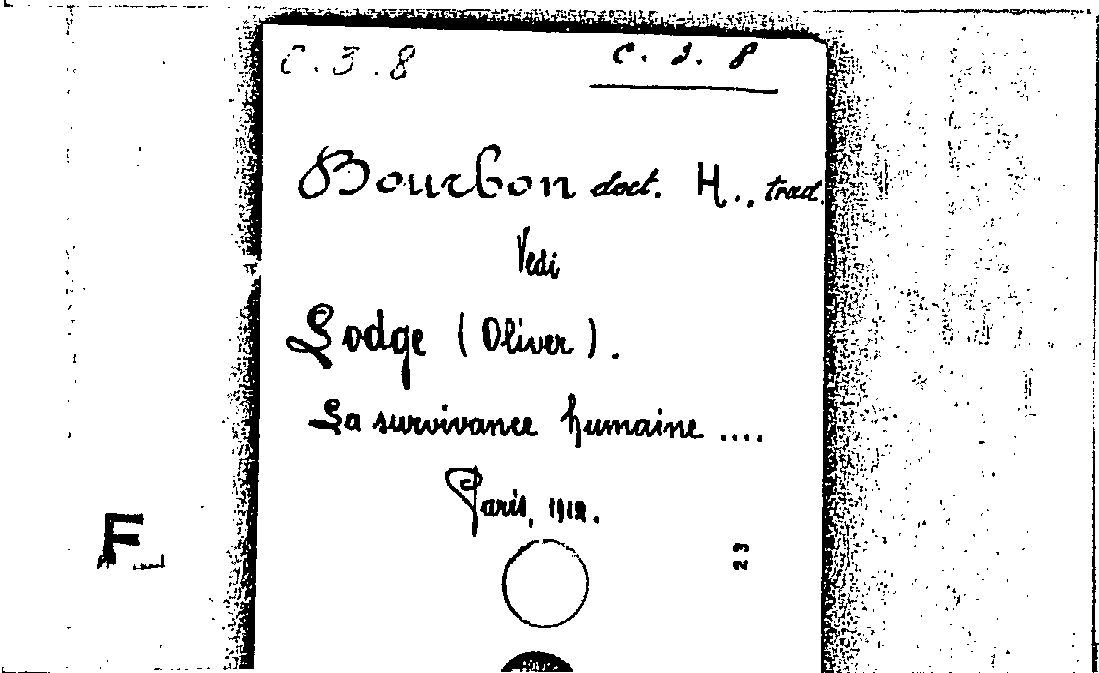 C. 3. 8 C. 3. 8
Bourbon doct. H., trad.
Vedi
Lodge (Oliver).
La survivance humaine ....
Paris, 1912.
23
F